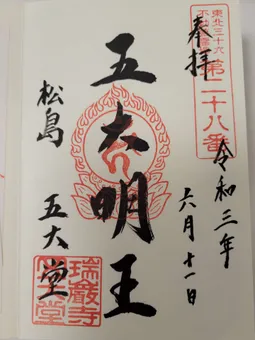 奉拝
東北三十六
不動尊霊場
第二十八番
令和三年
六月十一日
五大明王
松島 五大堂
瑞巌寺
五大堂